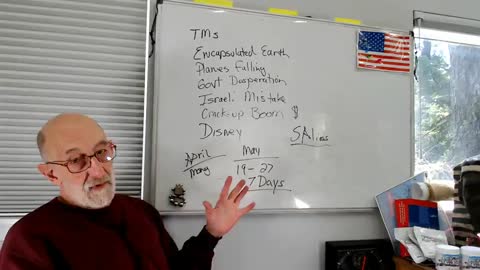 TMs
Encapsulated Earth
Planes Falling
Govt Desperation
Israeli Mistake
Crack-up Boom $
Disney
SAliens
April
May
19-27
7 Days